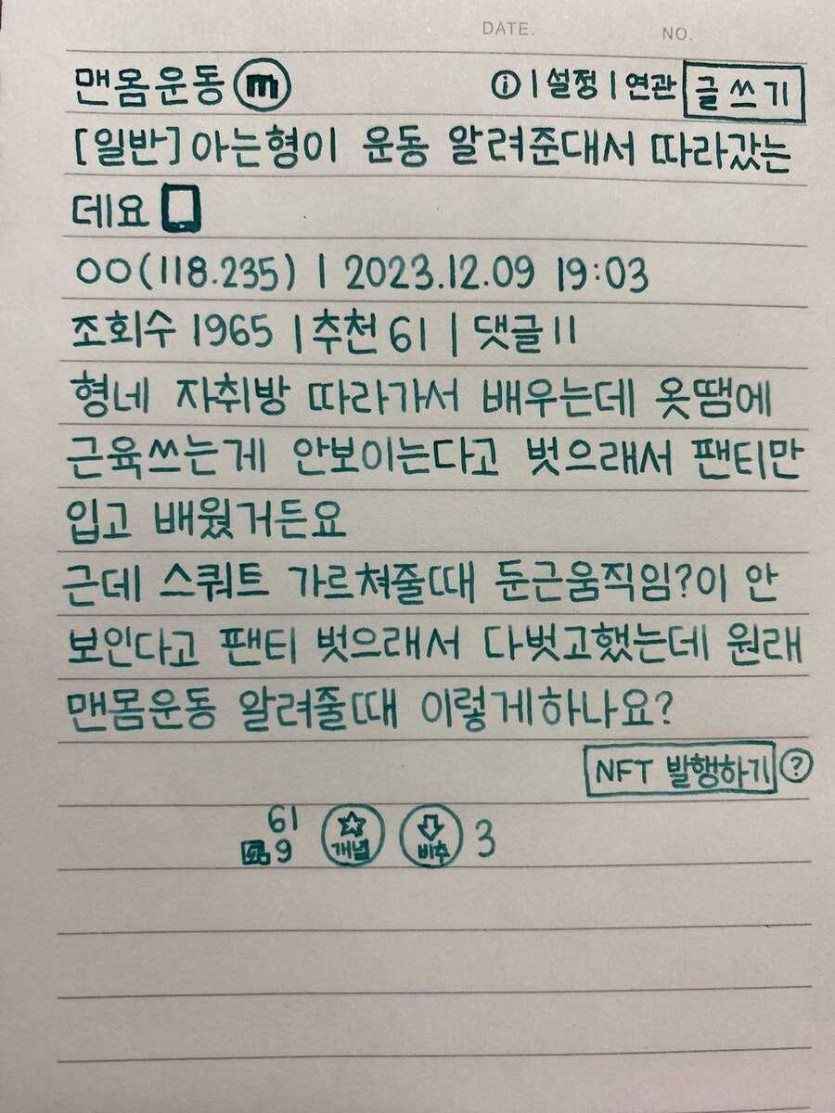 DATE. NO.
맨몸운동 m ⓘ | 설정 | 연관 글쓰기
[일반] 아는형이 운동 알려준대서 따라갔는
데요
ㅇㅇ(118.235) | 2023.12.09 19:03
조회수 1965 | 추천 61 | 댓글 11
형네 자취방 따라가서 배우는데 옷땜에
근육쓰는게 안보이는다고 벗으래서 팬티만
입고 배웠거든요
근데 스쿼트 가르쳐줄때 둔근움직임?이 안
보인다고 팬티 벗으래서 다벗고했는데 원래
맨몸운동 알려줄때 이렇게하나요?
NFT 발행하기 ?
61
9 개념 비추 3